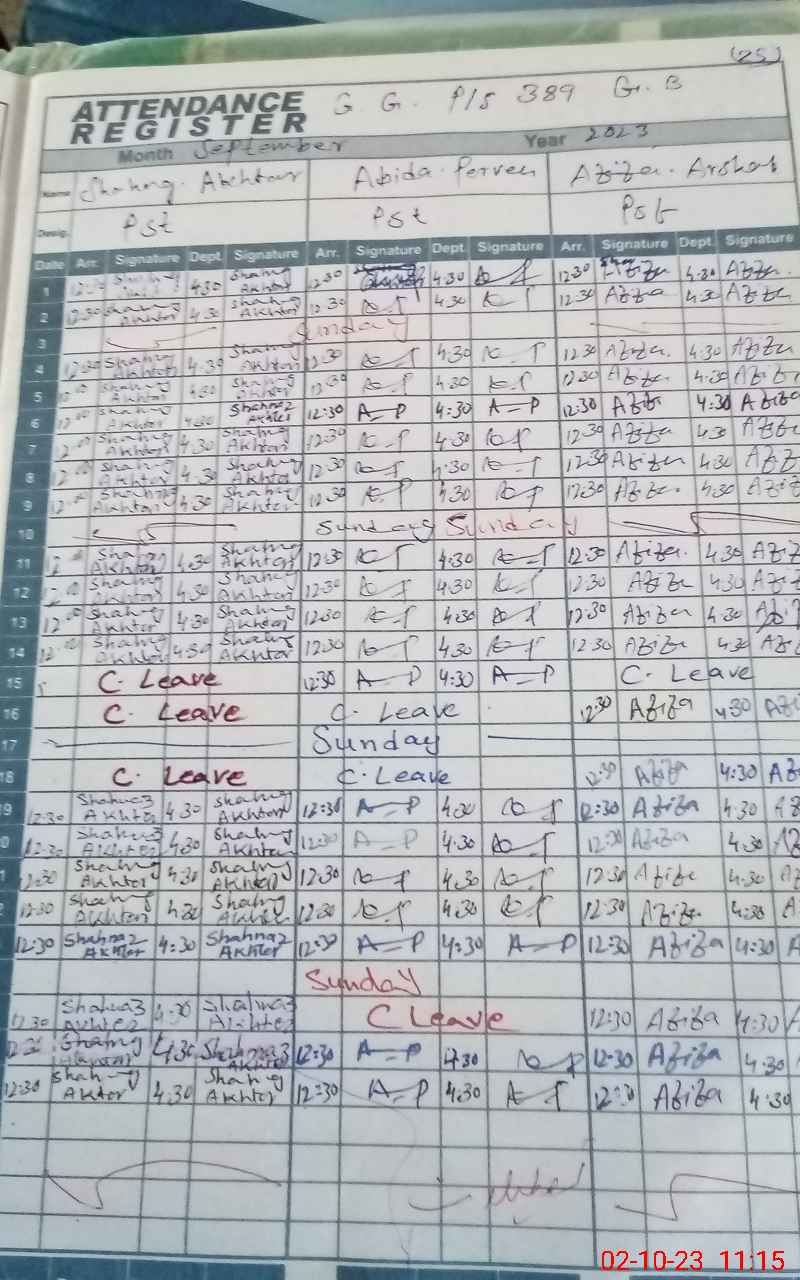 (25)
ATTENDANCE REGISTER G. G. P/S 389 G.B
Month September Year 2023
Name Shahnaz Akhtar Abida Perveen Aziza Arshad
Desig. PST PST PST
Date Arr. Signature Dept. Signature Arr. Signature Dept. Signature Arr. Signature Dept. Signature
1 4:30 Shahnaz Akhtar 12:30 4:30 A-P 12:30 Aziza 4:30 Aziza
2 12:30 Shahnaz Akhtar 4:30 Shahnaz Akhtar 12:30 A-P 4:30 A-P 12:30 Aziza 4:30 Aziza
3 Sunday
4 12:30 Shahnaz Akhtar 4:30 Shahnaz Akhtar 12:30 A-P 4:30 A-P 12:30 Aziza 4:30 Aziza
5 Shahnaz Akhtar 4:30 Shahnaz Akhtar 12:30 A-P 4:30 A-P 12:30 Aziza 4:30 Aziz
6 12:00 Shahnaz Akhtar 4:30 Shahnaz Akhter 12:30 A-P 4:30 A-P 12:30 Aziza 4:30 Aziza
7 12:00 Shahnaz Akhtar 4:30 Shahnaz Akhtar 12:30 A-P 4:30 A-P 12:30 Aziza 4:30 Aziz
8 12:00 Shahnaz Akhtar 4:30 Shahnaz Akhtar 12:30 A-P 4:30 A-P 12:30 Aziza 4:30 Aziz
9 12:00 Shahnaz Akhtar 4:30 Shahnaz Akhtar 12:30 A-P 4:30 A-P 12:30 Aziza 4:30 Aziz
10 Sunday Sunday
11 Shahnaz Akhtar 4:30 Shahnaz Akhtar 12:30 A-P 4:30 A-P 12:30 Aziza 4:30 Aziz
12 12:00 Shahnaz Akhtar 4:30 Shahnaz Akhtar 12:30 A-P 4:30 A-P 12:30 Aziza 4:30 Aziz
13 12:00 Shahnaz Akhtar 4:30 Shahnaz Akhtar 12:30 A-P 4:30 A-P 12:30 Aziza 4:30 Aziz
14 12:00 Shahnaz Akhtar 4:30 Shahnaz Akhtar 12:30 A-P 4:30 A-P 12:30 Aziza 4:30 Aziz
15 C. Leave 12:30 A-P 4:30 A-P C. Leave
16 C. Leave C. Leave 12:30 Aziza 4:30 Azi
17 Sunday
18 C. Leave C. Leave 12:30 Aziza 4:30 Az
9 12:30 Shahnaz Akhtar 4:30 Shahnaz Akhtar 12:30 A-P 4:30 A-P 12:30 Aziza 4:30 Az
0 12:30 Shahnaz Akhter 4:30 Shahnaz Akhtar 12:30 A-P 4:30 A-P 12:30 Aziza 4:30 Az
1 12:30 Shahnaz Akhtar 4:30 Shahnaz Akhtar 12:30 A-P 4:30 A-P 12:30 Aziza 4:30 Az
2 12:30 Shahnaz Akhtar 4:30 Shahnaz Akhter 12:30 A-P 4:30 A-P 12:30 Aziza 4:30 A
12:30 Shahnaz Akhter 4:30 Shahnaz Akhter 12:30 A-P 4:30 A-P 12:30 Aziza 4:30 A
Sunday
12:30 Shahnaz Akhter 4:30 Shahnaz Akhter C Leave 12:30 Aziza 4:30 A
Shahnaz 4:30 Shahnaz Akhter 12:30 A-P 4:30 A-P 12:30 Aziza 4:30
12:30 Shahnaz Akhtar 4:30 Shahnaz Akhtar 12:30 A-P 4:30 A-P 12:30 Aziza 4:30
02-10-23 11:15